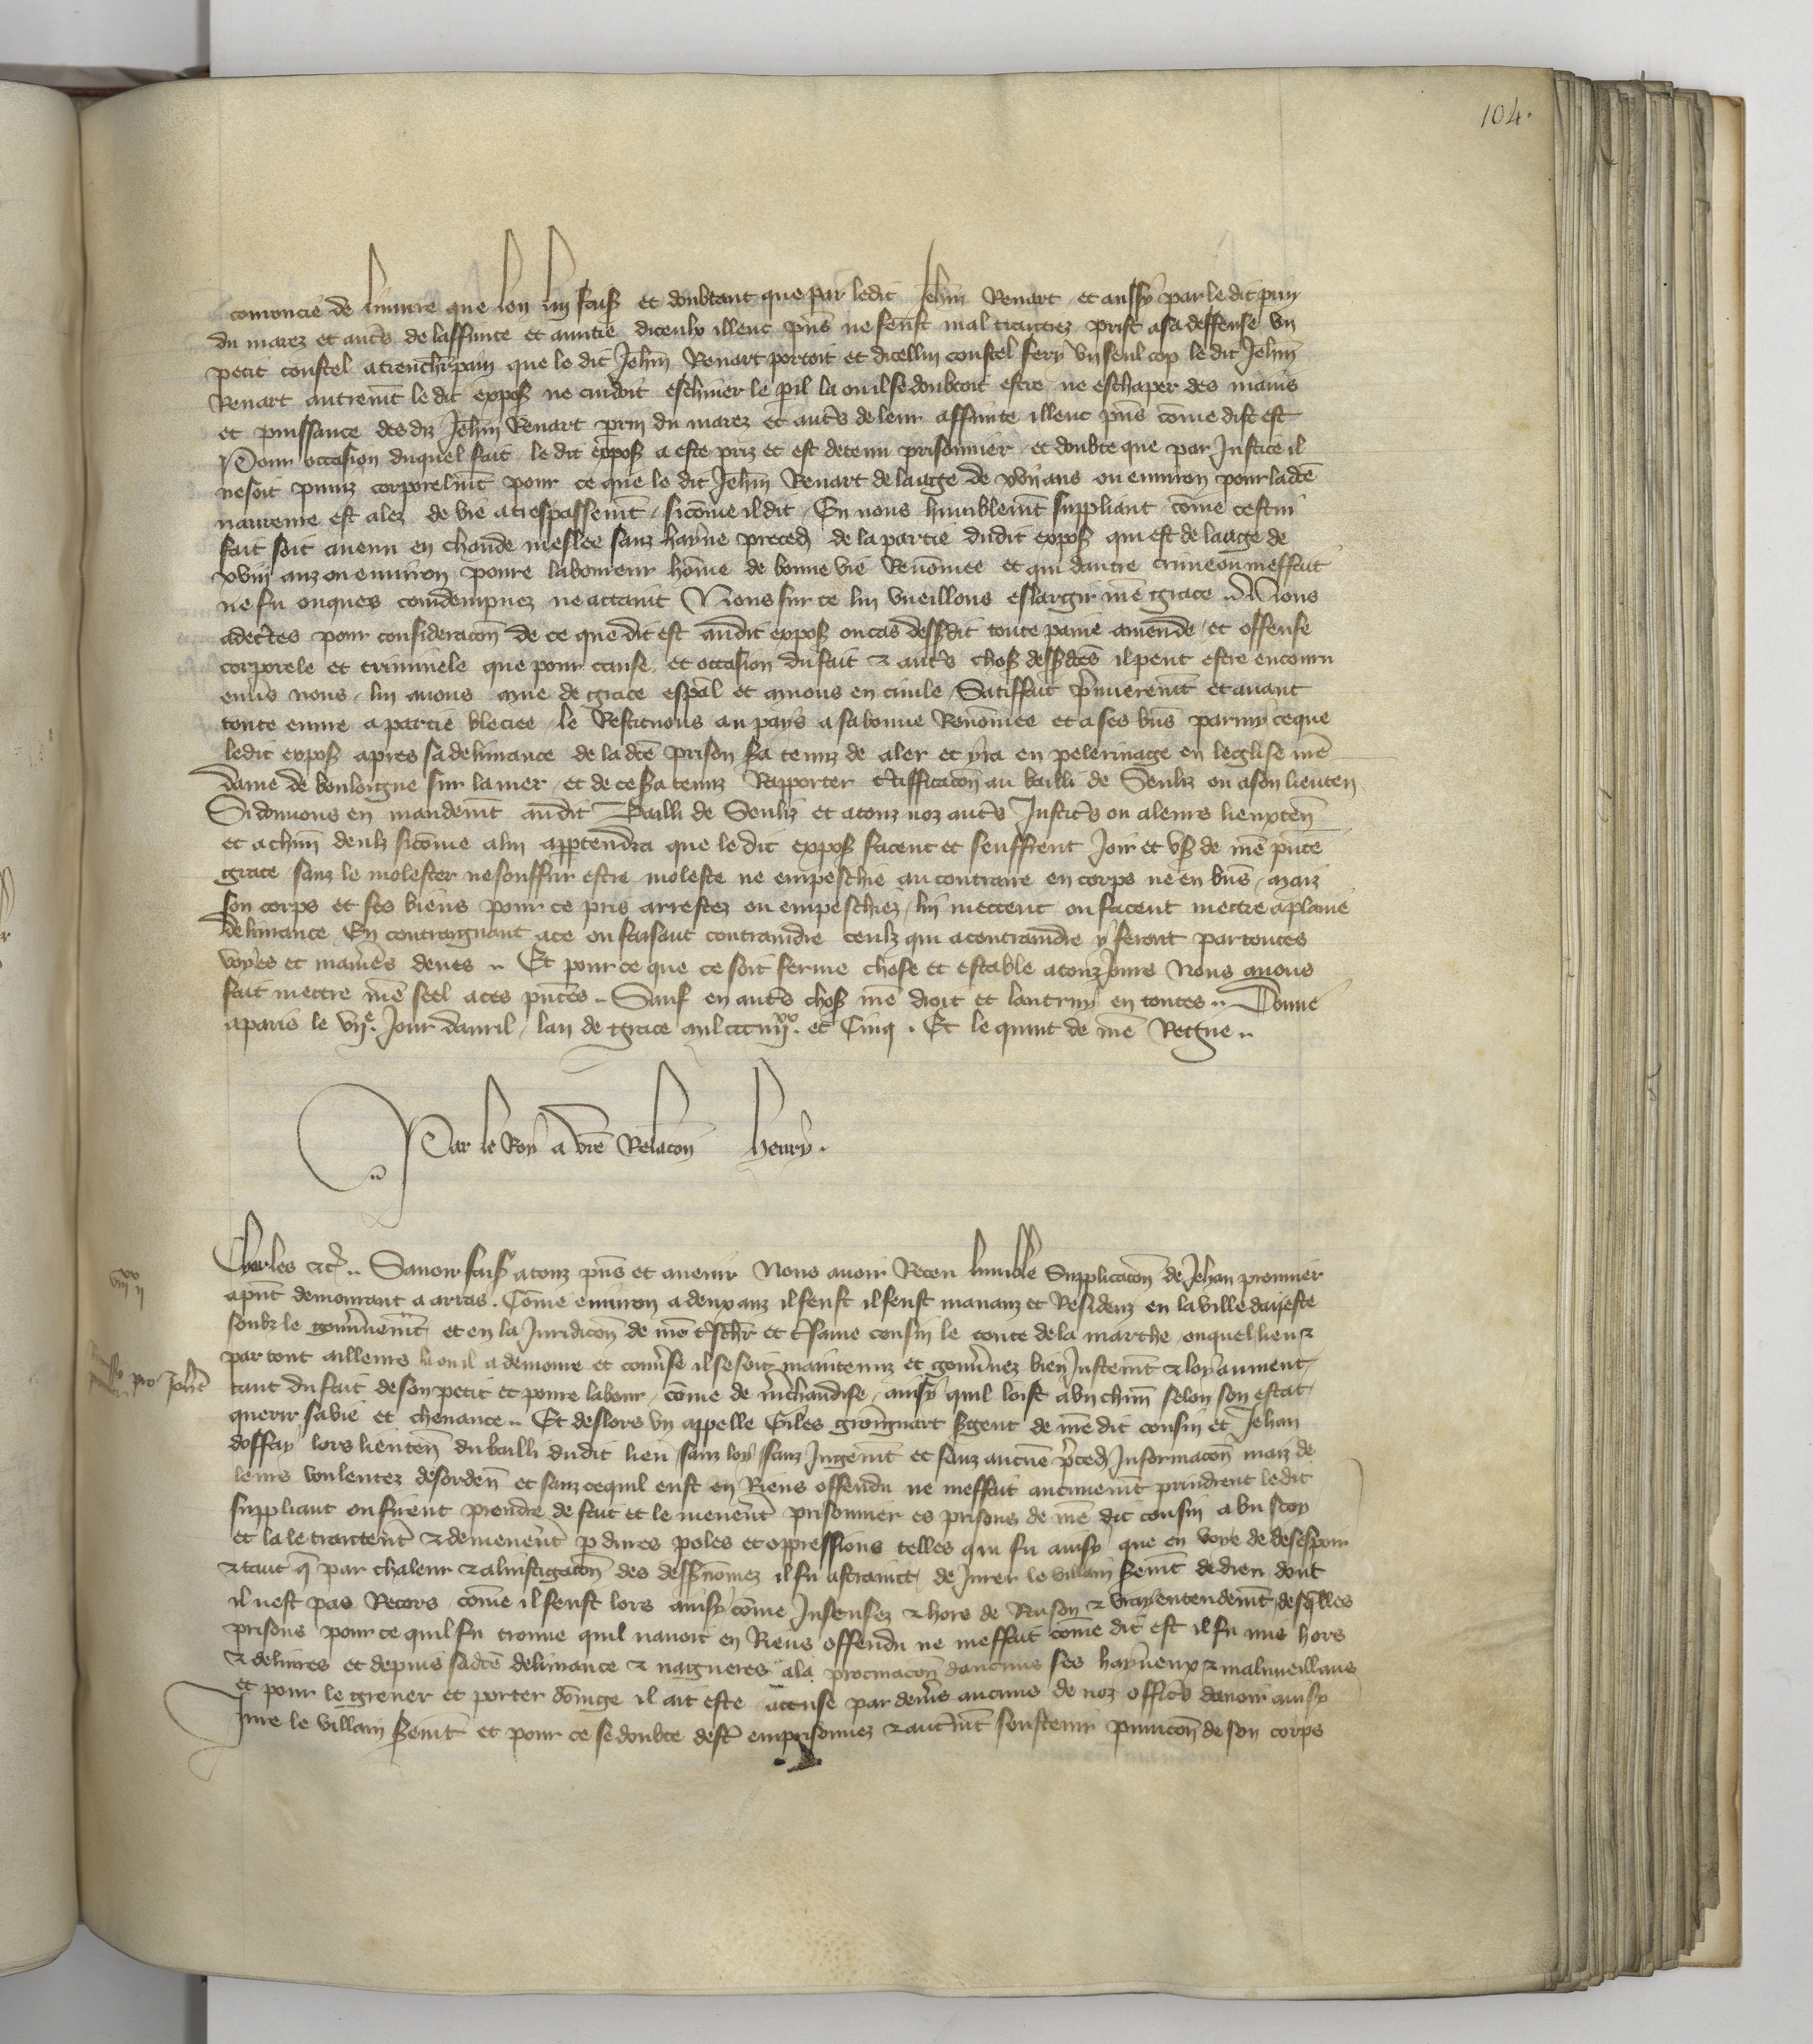 104.
comoncie de linuire que len luy faisoit et doubtant que par ledit Jehan Renart et aussy par ledit prin
du marez et autres de laffinite et amitie diceulx illenc pns ne feust mal traictiez prist a sa deffense vn
petit coustel a trencher pain que le dit Jehan Renart portoit et dicellui coustel fery vn seul cop le dit Jehan
Renart autremt le dit expos ne cuidoit eschiuer le peril la ou il se doubtoit estre ne eschaper des mains
et puissance des diz Jehan Renart prin du marez et autres de leur affinite illenc pns come dist est
Pour occasion duquel fait le dit expos a este priz et est detenu prisonnier et doubte que par Justice il
ne soit puniz corporelmt pour ce que le dit Jehan Renart de laage de ans ou enuiron pour ladce
naureure est alez de vie a trespassemt sicome il dit En nous humblemt suppliant come cestui
fait soit auenu en chaude meslee sanz hayne preced de la partie dudit expos qui est de laage de
xviij anz ou enuiron poure laboureur home de bonne vie Renomee et qui dautre crime ou meffait
ne fu onques condempnez ne actaint Nous sur ce lui vueillons eslargir nre grace Nous
adecertes pour consideracon de ce que dit est audit expos ou cas dessdit toute paine amende et offense
corporele et criminele que pour cause et occasion du fait & autres choses dessdces il peut estre encouru
enuers nous lui auons mue de grace espal et muons en ciuile Satiffait premierement et auant
toute euure a partie bleciee le Restituons au pays a sa bonne Renomee et a ses biens parmy ce que
ledit expos apres sa deliurance de la dce prison sera tenuz de aler et yra en pelerinage en leglise nre
dame de bouloigne sur la mer et de ce sera tenuz Rapporter certifficacon au bailli de Senliz ou a son lieuten
Si donnons en mandemt audit Bailli de Senliz et a touz noz autres Justiciers ou a leurs lieuxten
et a chun deulx sicome a lui appartendra que le dit expos facent et seuffrent Joir et vser de nre pnte
grace sanz le molester ne souffrir estre moleste ne empeschie au contraire en corps ne en biens maiz
son corps et ses biens pour ce pris arrestez ou empeschiez lui mettent ou facent mettre a plaine
deliurance En contraignant a ce ou faisant contraindre ceulx qui a contraindre y seront par toutes
voyes et manieres deues Et pour ce que ce soit ferme chose et estable a touz Jours Nous auons
fait mettre nre seel a ces pntes Sauf en autres choses nre droit et lautruy en toutes Donne
a paris le vije Jour dauril lan de grace mil ccc iiijxx et Cinq Et le quint de nre Regne
Par le Roy a vre Relacon Henry
Charles etc Sauoir faisons a touz pns et auenir Nous auoir Receu humble Supplicacon de Jehan prounier
apnt demourant a arras Come enuiron a deux anz il feust il feust manans et Residenz en la ville
soubz le gouuernemt et en la Juridicon de nre treschier et tresame cousin le conte de la marche ouquel lieu &
par tout ailleurs la ou il a demoure et conuerse il se soit maintenuz et gouuernez bien Justemt & loyaument
tant du fait de son petit et poure labour come de marchandise ainsy quil loist a vn chun selon son estat
querir sa vie et cheuance Et deslors vn appelle Giles sergent de nre dit cousin et Jehan
doffay lors lieuten du bailli dudit lieu sanz loy sanz Jugemt et sanz aucune preced Informacon maiz de
leurs voulentez desorden et sanz ce quil eust en Riens offendu ne meffait aucunemt prindrent ledit
suppliant ou firent prendre de fait et le menerent prisonnier es prisons de nre dit cousin a
et la le traicterent & demenerent par dures paroles et oppressions telles quil fu ainsy que en voye de desespoir
& tant que par chaleur & a linstigacon des dessnomez il fu astrainct de Jurer le villain serement de dieu dont
il nest pas Recors come il feust lors ainsy come Insensez & hors de Raison & vray entendemt desquelles
prisons pour ce quil fu trouue quil nauoit en Riens offendu ne meffait come dit est il fu mis hors
& deliures et depuis sadce deliurance & nagueres a la procuracon daucuns ses hayneux & malueillans
et pour le greuer et porter domage il ait este accuse par deuers aucuns de noz officiers dauoir ainsy
Jure le villain serement et pour ce se doubte destre emprisonnez & autremt soustenir punicon de son corps